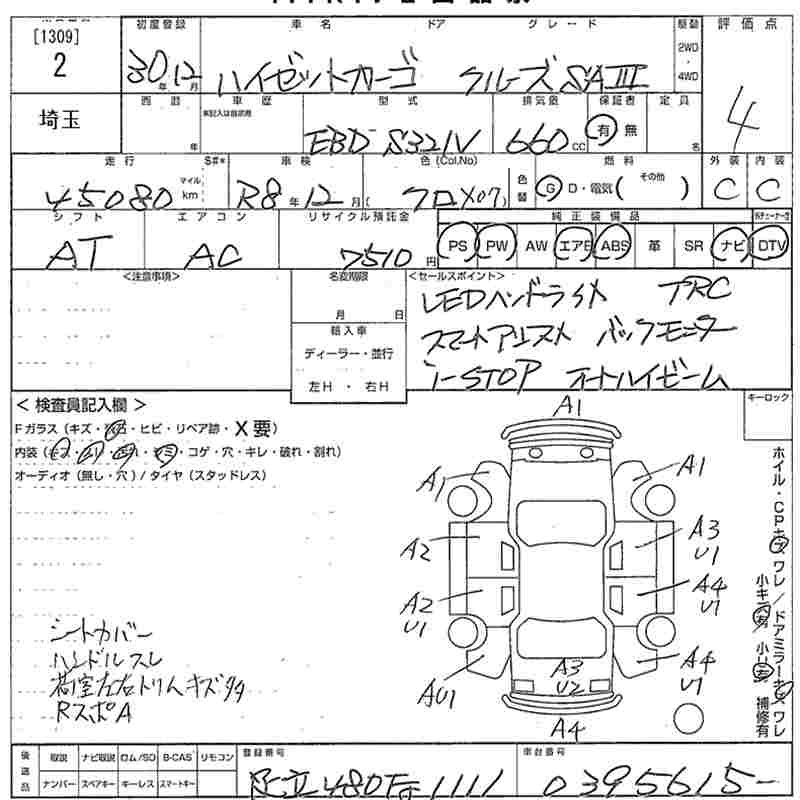 [1309]
2
埼玉
初度登録 車名 ドア グレード 駆動 評価点
30年12月 ハイゼットカーゴ クルーズSAIII 2WD・4WD 4
西暦 車歴 型式 排気量 保証書 定員
年 未記入は自家用 EBD S321V 660cc 有 無 名
走行 S#* 車検 色(Col.No) 燃料 外装 内装
45080 マイル km R8年12月 ( クロX07) 色替 G D・電気( その他 ) C C
シフト エアコン リサイクル預託金 純正装備品
AT AC 7510円 PS PW AW エアB ABS 革 SR ナビ DTV
<注意事項> 名変期限 <セールスポイント>
月 日 LEDヘッドライト TRC
輸入車 スマートアシスト バックモニター
ディーラー・並行 i-STOP オートハイビーム
左H ・ 右H
<検査員記入欄> キーロック
Fガラス(キズ・・ヒビ・リペア跡・X要)
内装(・コゲ・穴・キレ・破れ・割れ)
オーディオ(無し・穴)/タイヤ(スタッドレス)
A1
A1 A1
A2 A3 U1
A2 U1 A4 U1
AU1 A3 U2 A4 U1
A4
ホイル・CPキズ ワレ/ドアミラーキズ ワレ
小キズ有 小U有 補修有
シートカバー
ハンドルスレ
荷室左右トリムキズ多々
RスポA
後送品 取説 ナビ取説 ロム/SD B-CAS リモコン 登録番号 車台番号
ナンバー スペアキー キーレス スマートキー 足立480 1111 0395615-